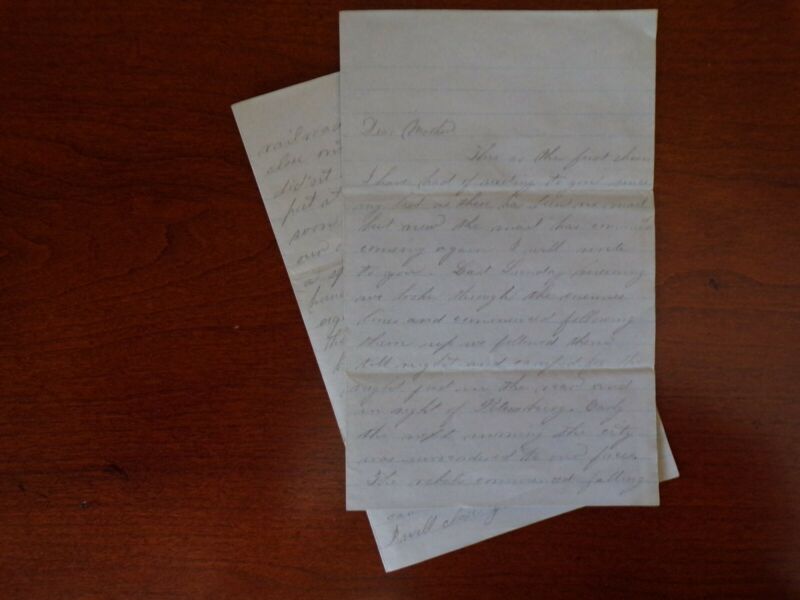 Dear Mother
This is the first chance
I have had of writing to you since
my last as there has been no mail
but now the mail has commenced
coming again I will write
to you. Last Sunday morning
we broke through the enemies
lines and commenced following
them up we followed them
till night and camped for the
night just in the rear and
in sight of Petersburg. Early
the next morning the city
was surrendered to our forces.
The rebels commenced falling
railroad
also
did'nt
put at
soon
our
a
have
the
I will close